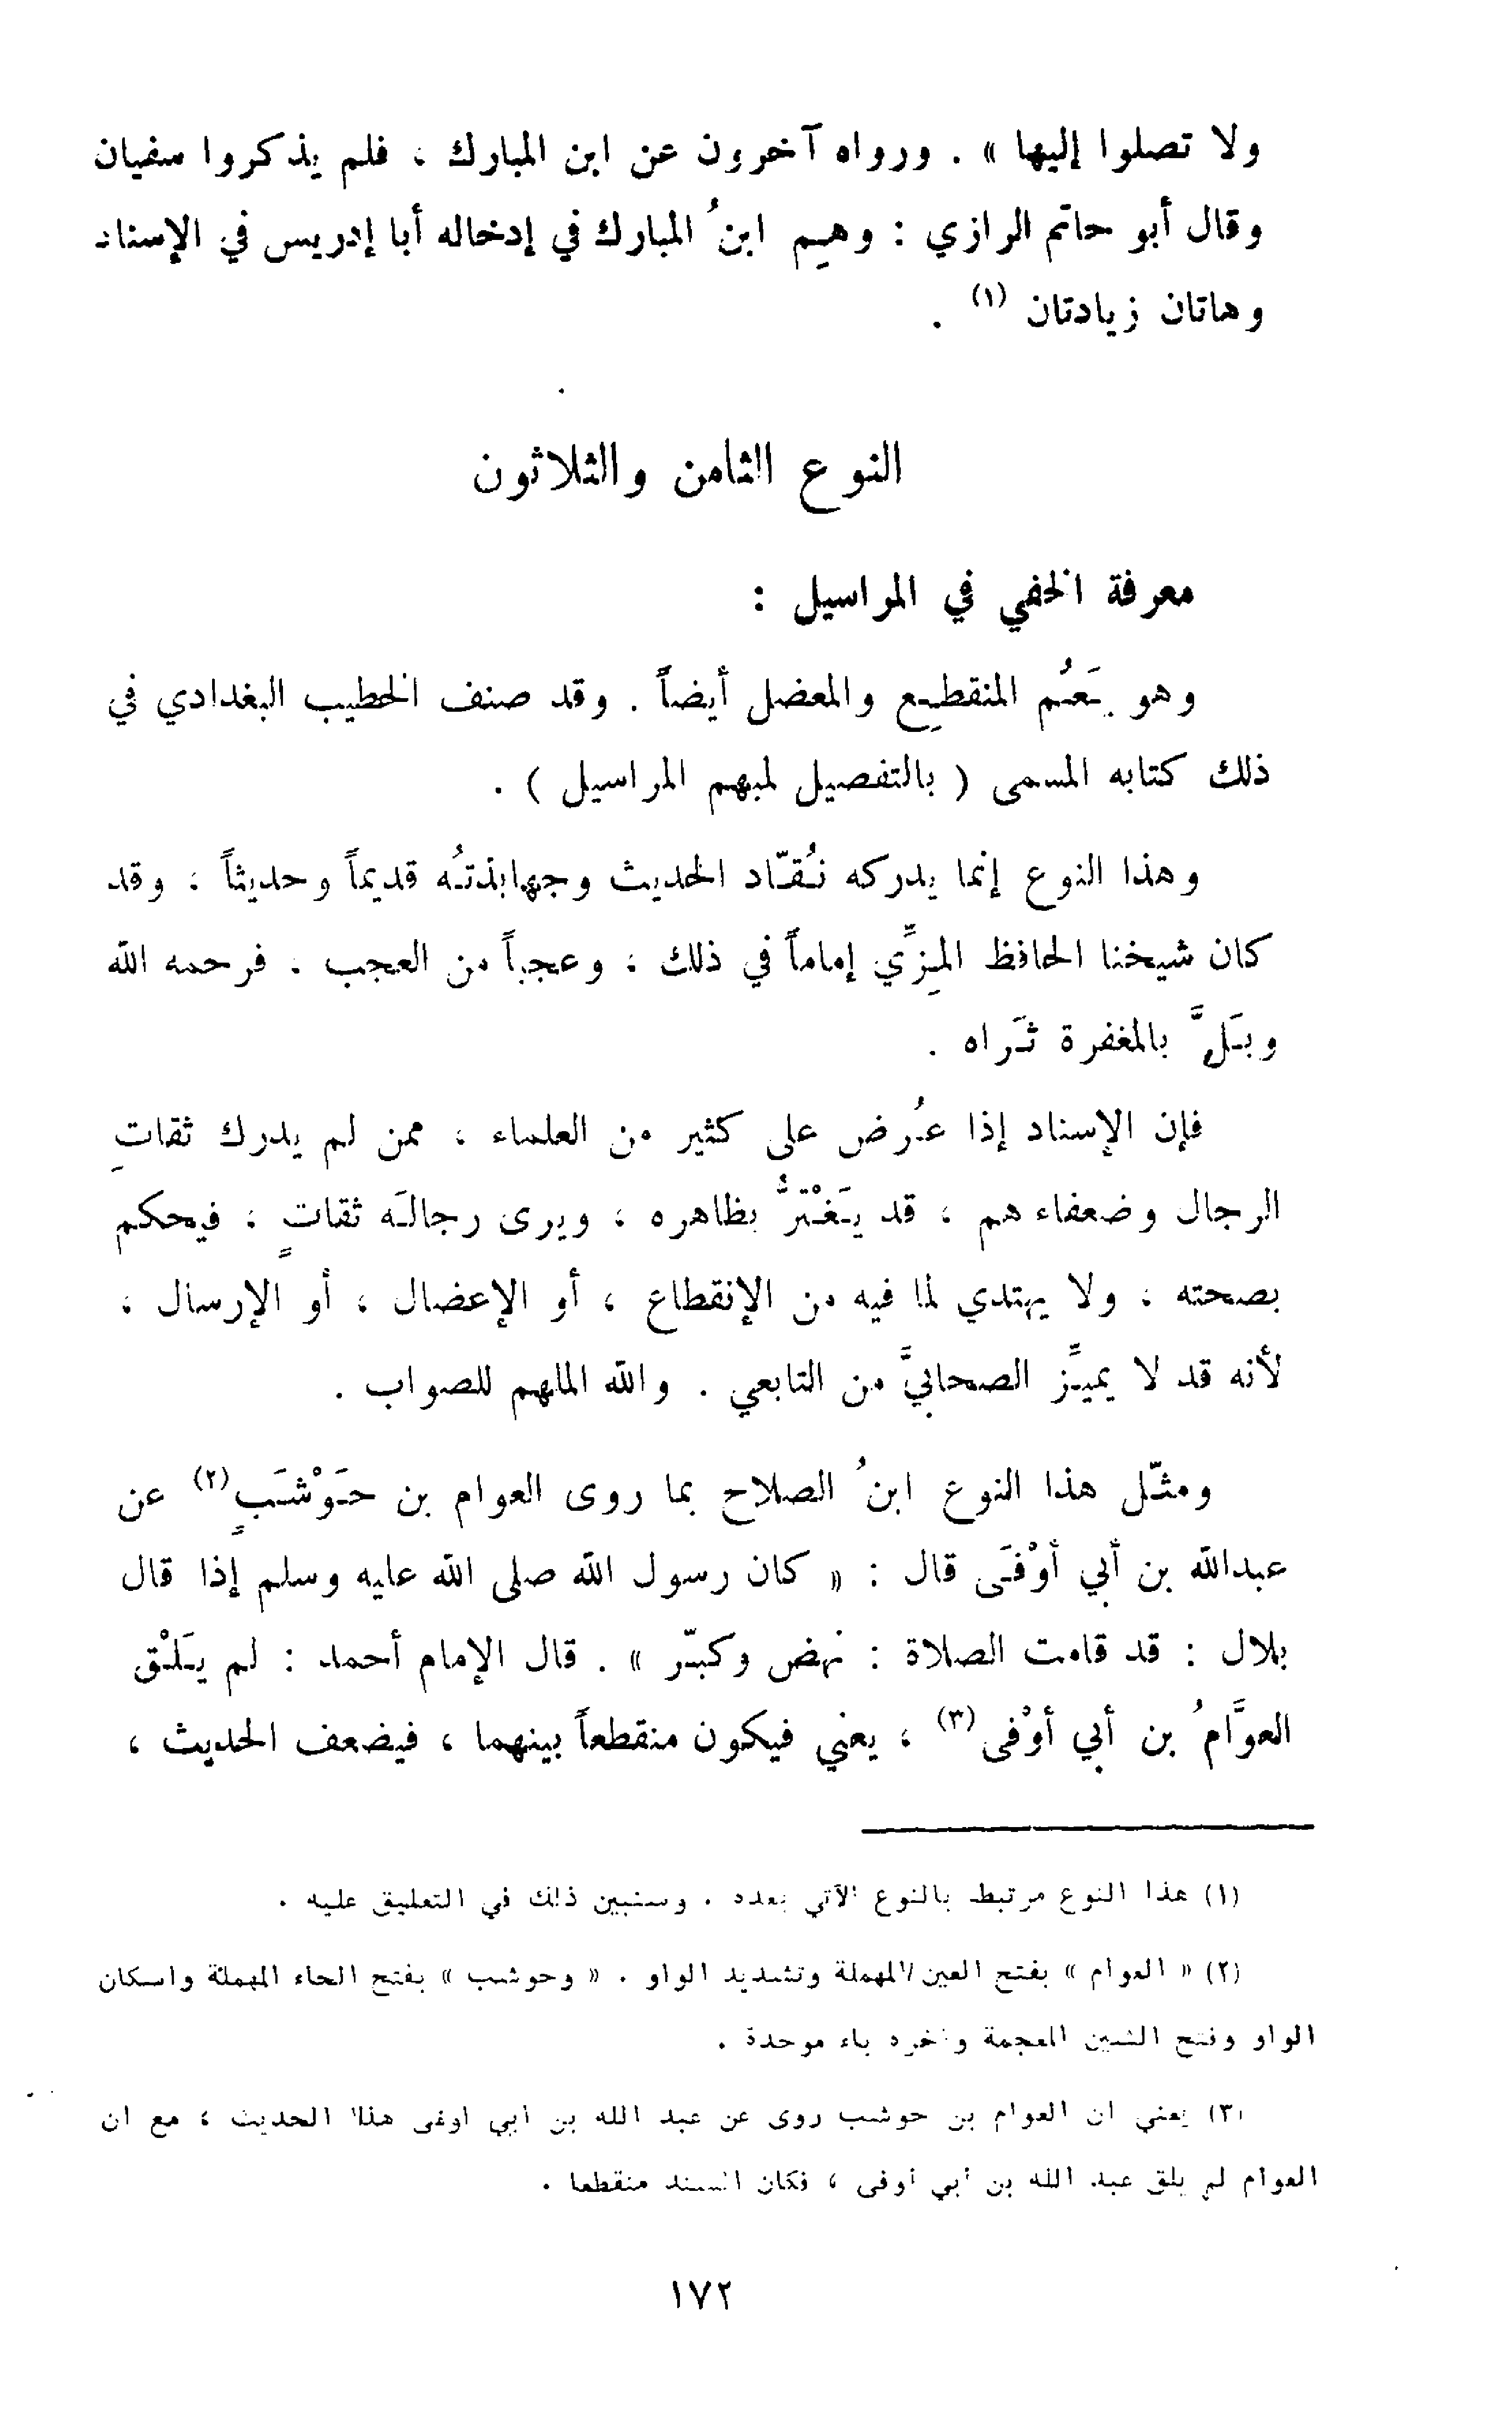 ولا تصلوا إليها » . ورواه آخرون عن ابن المبارك ، فلم يذكروا سفيان
وقال أبو حاتم الرازي : وهِم ابنُ المبارك في إدخاله أبا إدريس في الإسناد
وهاتان زيادتان (١) .
النوع الثامن والثلاثون
معرفة الخفي في المراسيل :
وهو يَعُم المنقطِع والمعضل أيضاً . وقد صنف الخطيب البغدادي في
ذلك كتابه المسمى ( بالتفصيل لمبهم المراسيل ) .
وهذا النوع إنما يدركه نُقّاد الحديث وجهابذتُه قديماً وحديثاً ، وقد
كان شيخنا الحافظ المِزِّي إماماً في ذلك ، وعجباً من العجب . فرحمه الله
وبَلَّ بالمغفرة ثَراه .
فإن الإسناد إذا عُرض على كثير من العلماء ، ممن لم يدرك ثقاتِ
الرجال وضعفاءهم ، قد يَغْتَرُّ بظاهره ، ويرى رجالَه ثقاتٍ ، فيحكم
بصحته ، ولا يهتدي لما فيه من الإنقطاع ، أو الإعضال ، أو الإرسال ،
لأنه قد لا يميِّز الصحابيَّ من التابعي . والله الملهم للصواب .
ومثّل هذا النوع ابنُ الصلاح بما روى العوام بن حَوْشَبٍ (٢) عن
عبدالله بن أبي أوْفَى قال : « كان رسول الله صلى الله عليه وسلم إذا قال
بلال : قد قامت الصلاة : نهض وكبّر » . قال الإمام أحمد : لم يَلْق
العوَّامُ بن أبي أوْفى (٣) ، يعني فيكون منقطعاً بينهما ، فيضعف الحديث ،
(١) هذا النوع مرتبط بالنوع الآتي بعده . وسنبين ذلك في التعليق عليه .
(٢) « العوام » بفتح العين المهملة وتشديد الواو . « وحوشب » بفتح الحاء المهملة واسكان
الواو وفتح الشين المعجمة وآخره باء موحدة .
(٣) يعني ان العوام بن حوشب روى عن عبد الله بن أبي اوفى هذا الحديث ، مع ان
العوام لم يلق عبد الله بن أبي أوفى ، فكان السند منقطعا .
١٧٢